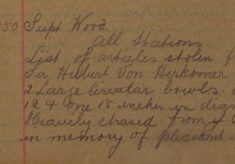 50 Supt Wood
All Stations
List of articles stolen f
Sir Hubert Von Herkomer
2 Large Circular bowls,
12 & one 18 inches in diam
Heavily chased from
in memory of pleasant